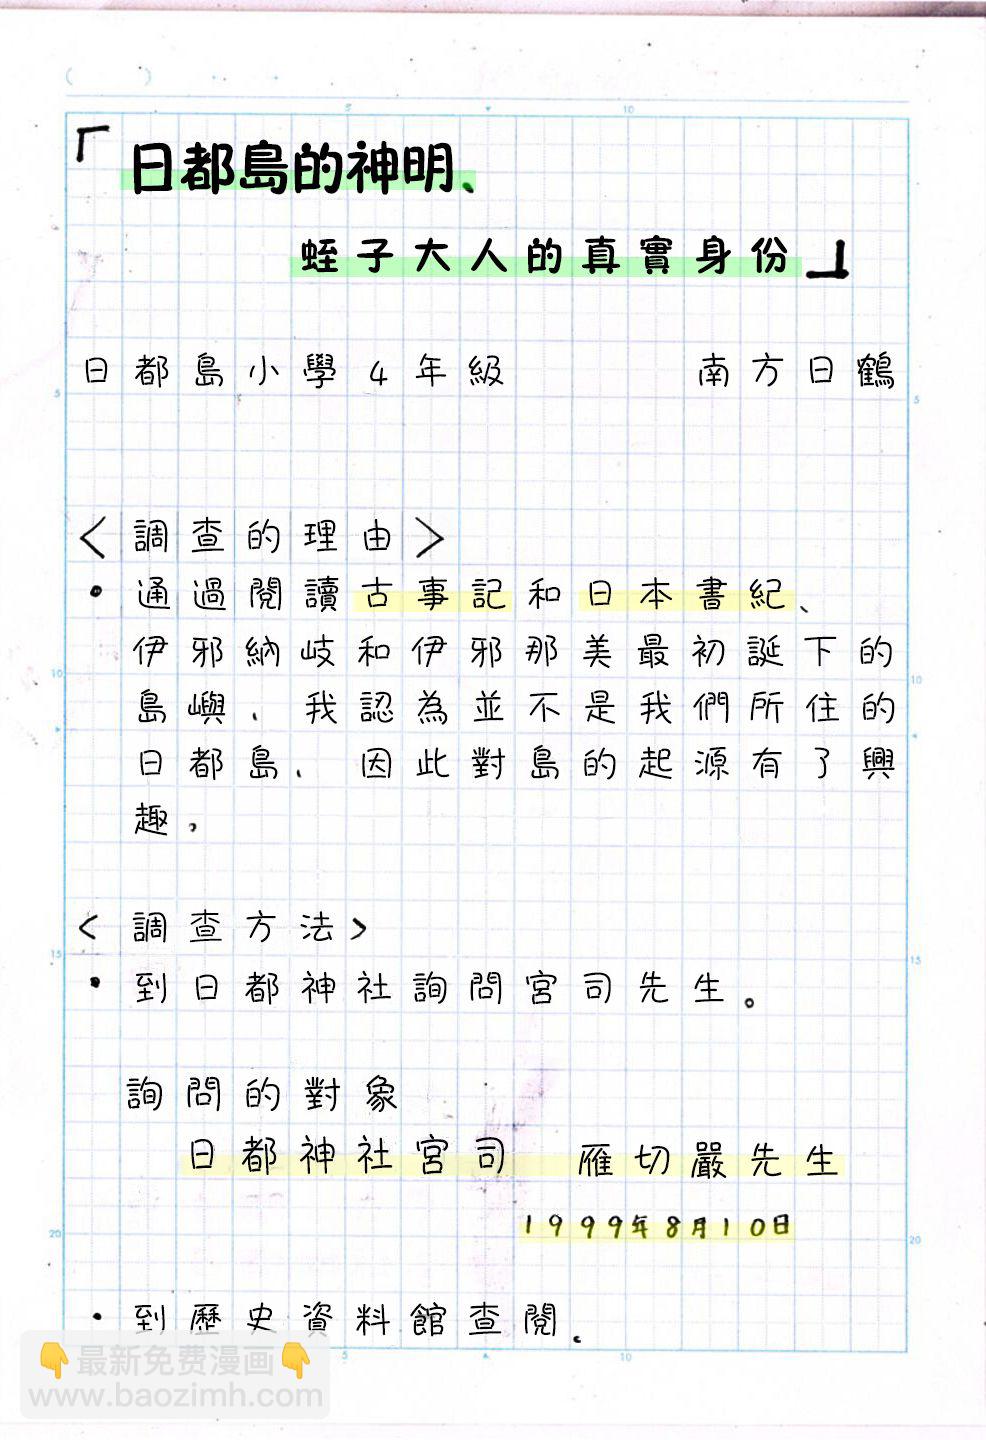 「日都島的神明、
蛭子大人的真實身份」
日都島小學4年級 南方日鶴
<調查的理由>
・通過閱讀古事記和日本書紀、
伊邪納岐和伊邪那美最初誕下的
島嶼、我認為並不是我們所住的
日都島、因此對島的起源有了興
趣，
<調查方法>
・到日都神社詢問宮司先生。
詢問的對象
日都神社宮司 雁切嚴先生
1999年8月10日
・到歷史資料館查閱．
👇最新免费漫画👇
www.baozimh.com
5 10
5 5
10 10
15 15
20 20
5 10